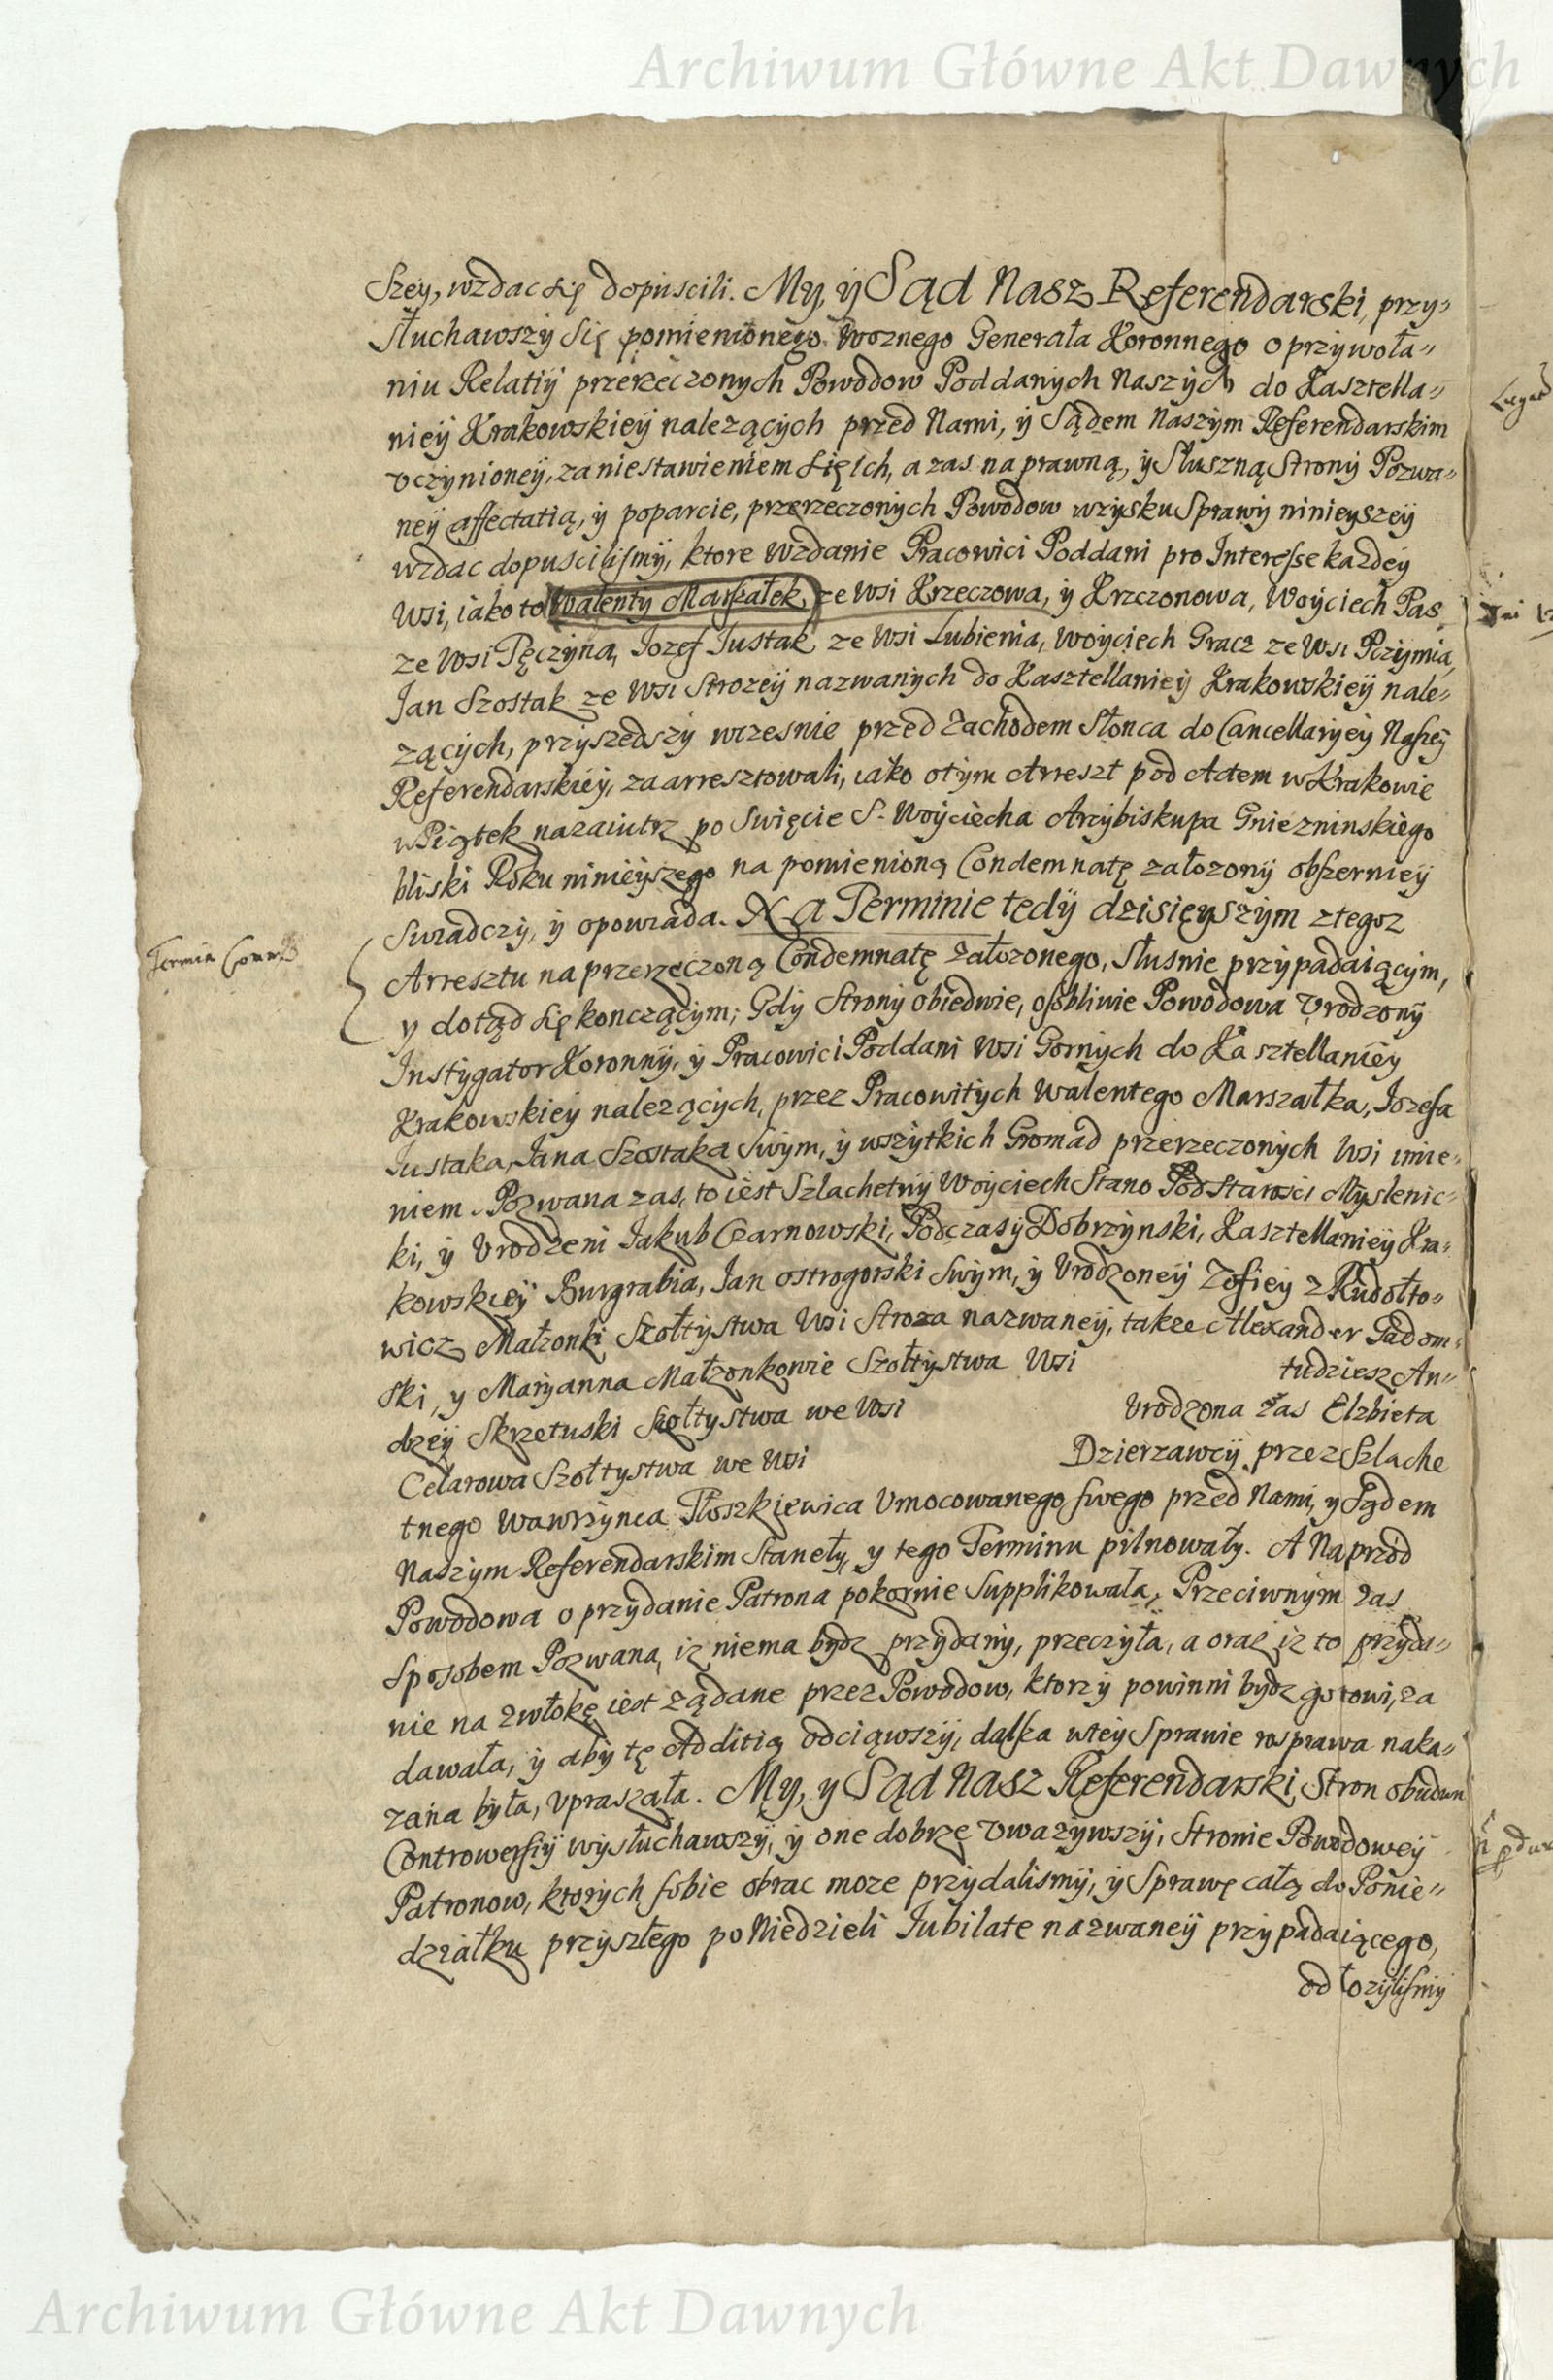 Archiwum Główne Akt Dawnych
Szey, wzdac się dopuscili. My, ÿ Sąd Nasz Referendarski, przy„
słuchawszÿ się pomienionego Woznego Generała Koronnego o przÿwoła„
niu Relatiÿ przerzeczonÿch Powodow Poddanÿch Naszÿch do Kasztella„
nieÿ Krakowskieÿ nalezącÿch przed Nami, ÿ Sądem Naszÿm Referendarskim
vczÿnioneÿ, za niestawieniem się Ich, a zas na prawną, ÿ Słuszną Stronÿ Pozwa„
neÿ affectatią, ÿ poparcie, przerzeczonÿch Powodow wzÿsku Sprawÿ ninieyszeÿ
wzdac dopuscilismÿ, ktore Wzdanie Pracowici Poddani pro Interesse kazdeÿ
Wsi, iako to Walenty Marszałek ze Wsi Krzeczowa, ÿ Krzczonowa, Woÿciech Pas
ze Wsi Pęczÿna, Iozef Iustak ze Wsi Lubienia, Woÿciech Gracz ze Wsi Pczÿmia,
Jan Szostak ze Wsi Strozeÿ nazwanÿch do Kasztellanieÿ Krakowskieÿ nale„
zącÿch, przÿszedszÿ wczesnie przed Zachodem Słonca do Cancellarÿeÿ Naszeÿ
Referendarskieÿ, zaarresztowali, iako o tÿm Arreszt pod Actem w Krakowie
w Piątek nazaiutrz po Swięcie S. Woÿciecha Arcÿbiskupa Gnieznínskiego
bliski Roku ninieÿszego na pomienioną Condemnatę załozonÿ obszernieÿ
Swiadczÿ, ÿ opowiada. Na Terminie tedÿ dzisieyszÿm z tegoz
Termin
Arresztu na przerzeczoną Condemnatę załozonego, słusnie przÿpadaiącÿm,
y dotąd się konczącÿm; Gdÿ Stronÿ obiedwie, osobliwie Powodowa Vrodzonÿ
Instÿgator Koronnÿ, ÿ Pracowici Poddani Wsi Gornÿch do Kasztellanieÿ
Krakowskieÿ nalezącÿch, przez Pracowitÿch Walentego Marszałka, Iozefa
Iustaka, Iana Szostaka Swÿm, ÿ wszÿtkich Gromad przerzeczonÿch Wsi imie„
niem. Pozwana zas, to iest Szlachetnÿ Woÿciech Stano Pod Starosci Mÿslenic„
ki, ÿ Vrodzeni Jakub Czarnowski, Podczasÿ Dobrzÿnski, Kasztellanieÿ Kra„
kowskieÿ Burgrabia, Jan ostrogorski Swÿm, ÿ Vrodzoneÿ Zofieÿ z Rudołto„
wicz Małzonki, Szołtÿstwa Wsi Stroza nazwaneÿ, takze Alexander Gadom„
ski, y Marÿanna Małzonkowie Szołtÿstwa Wsi tudziesz An„
drzeÿ Skrzetuski Szołtÿstwa we Wsi Vrodzona zas Elzbieta
Celarowa Szołtÿstwa we Wsi Dzierzawcÿ przez Szlache
tnego Wawrzÿnca Płoszkiewica Vmocowanego swego przed Nami, y Sądem
Naszÿm Referendarskim Stanełÿ, y tego Terminu pilnowałÿ. A Naprzod
Powodowa o przÿdanie Patrona pokornie Supplikowała, Przeciwnÿm zas
Sposobem Pozwana, iz niema bÿdz przÿdanÿ, przeczÿła, a oraz iz to przÿda„
nie na zwłokę iest ządane przez Powodow, ktorzÿ powinni bÿdz gotowi, za
dawała, ÿ abÿ tę Additią odciąwszÿ, dalsza w teÿ Sprawie rosprawa naka„
zana bÿła, vpraszała. Mÿ, y Sąd Nasz Referendarski, Stron obudwu
Controwersÿÿ wÿsłuchawszÿ, ÿ one dobrze Vwazÿwszÿ, Stronie Powodoweÿ
Patronow, ktorÿch sobie obrac moze przÿdalismÿ, ÿ Sprawę całą do Ponie„
działku przÿszłego po Niedzieli Jubilate nazwaneÿ przÿpadaiącego,
odłozÿlismÿ
Archiwum Główne Akt Dawnych